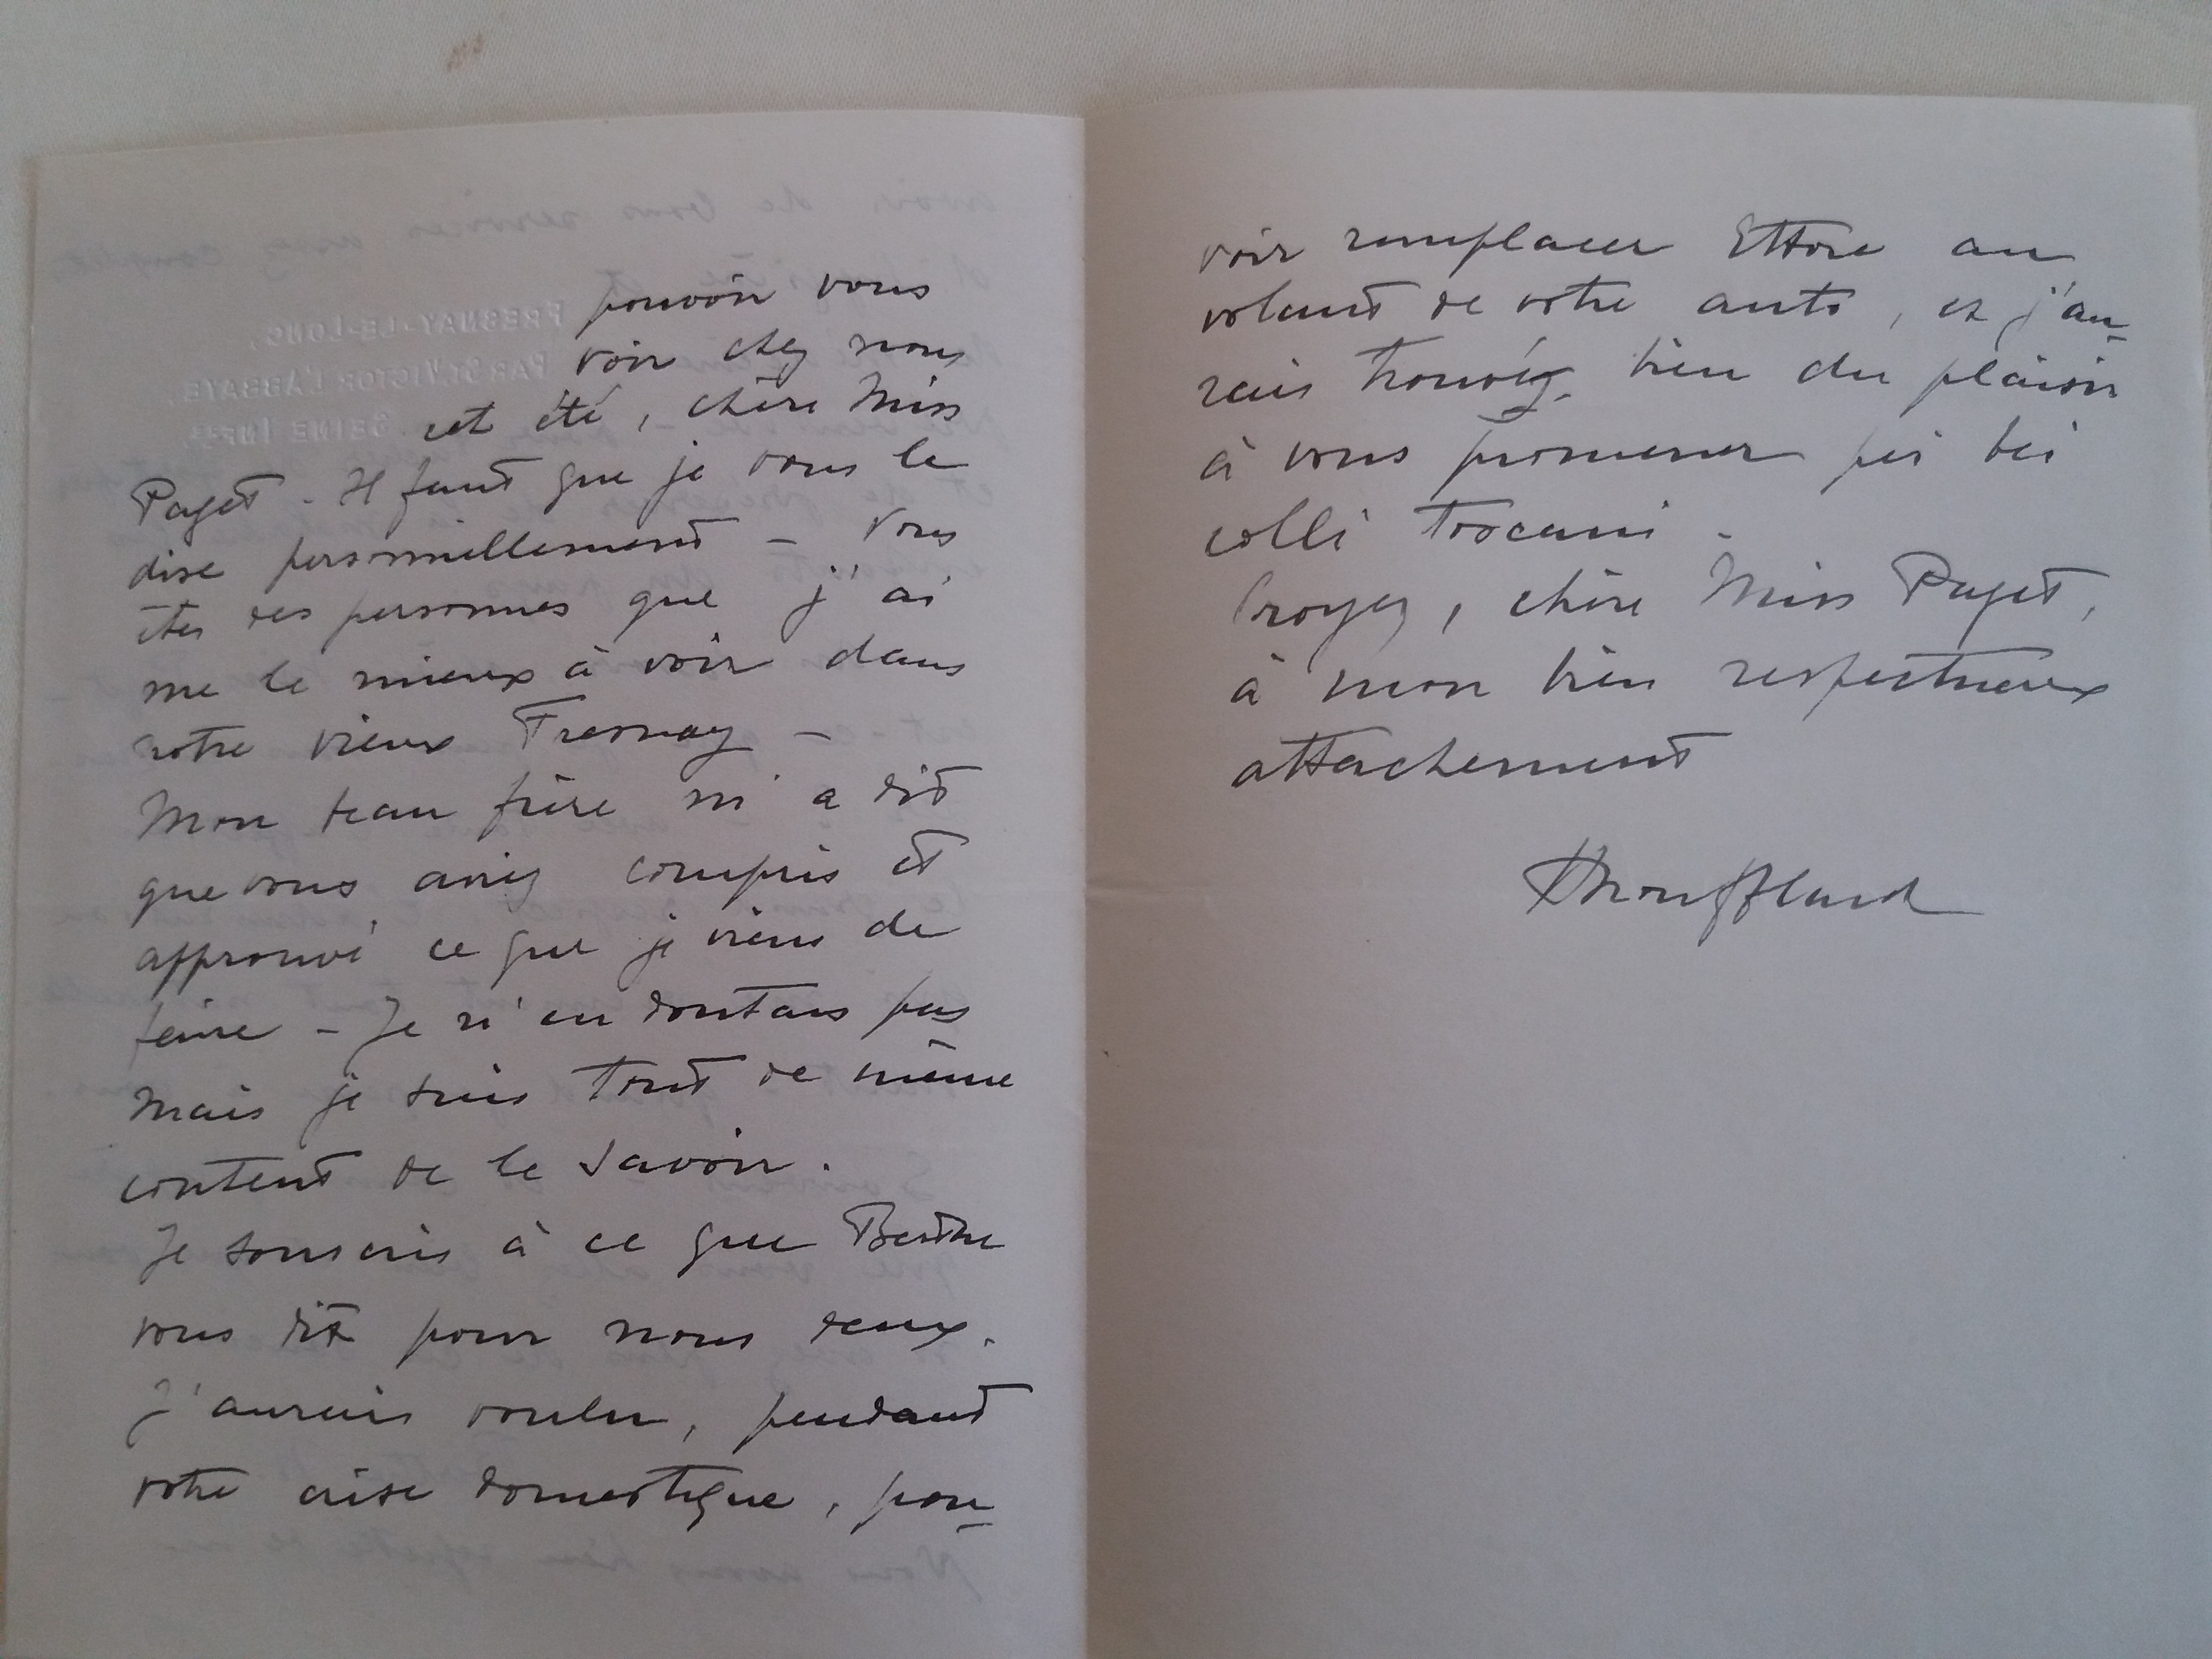 pouvoir vous
voir chez nous
cet été, chère Miss
Paget - Il faut que je vous le
dise personnellement - Vous
êtes des personnes que j'ai
me le mieux à voir dans
notre vieux Fresnay -
Mon beau frère m'a dit
que vous aviez compris et
approuvé ce que je viens de
faire - Je n'en doutais pas
mais je suis tout de même
content de le savoir.
Je souscris à ce que Berthe
vous dit pour nous deux.
J'aurais voulu, pendant
votre crise domestique, pou-
voir remplacer Ettore au
volant de votre auto, et j'au-
rais trouvé bien du plaisir
à vous promener pei bei
colli toscani.
Croyez, chère Miss Paget,
à mon bien respectueux
attachement
Noufflard
FRESNAY-LE-LONG,
PAR ST VICTOR L'ABBAYE,
SEINE INFRE